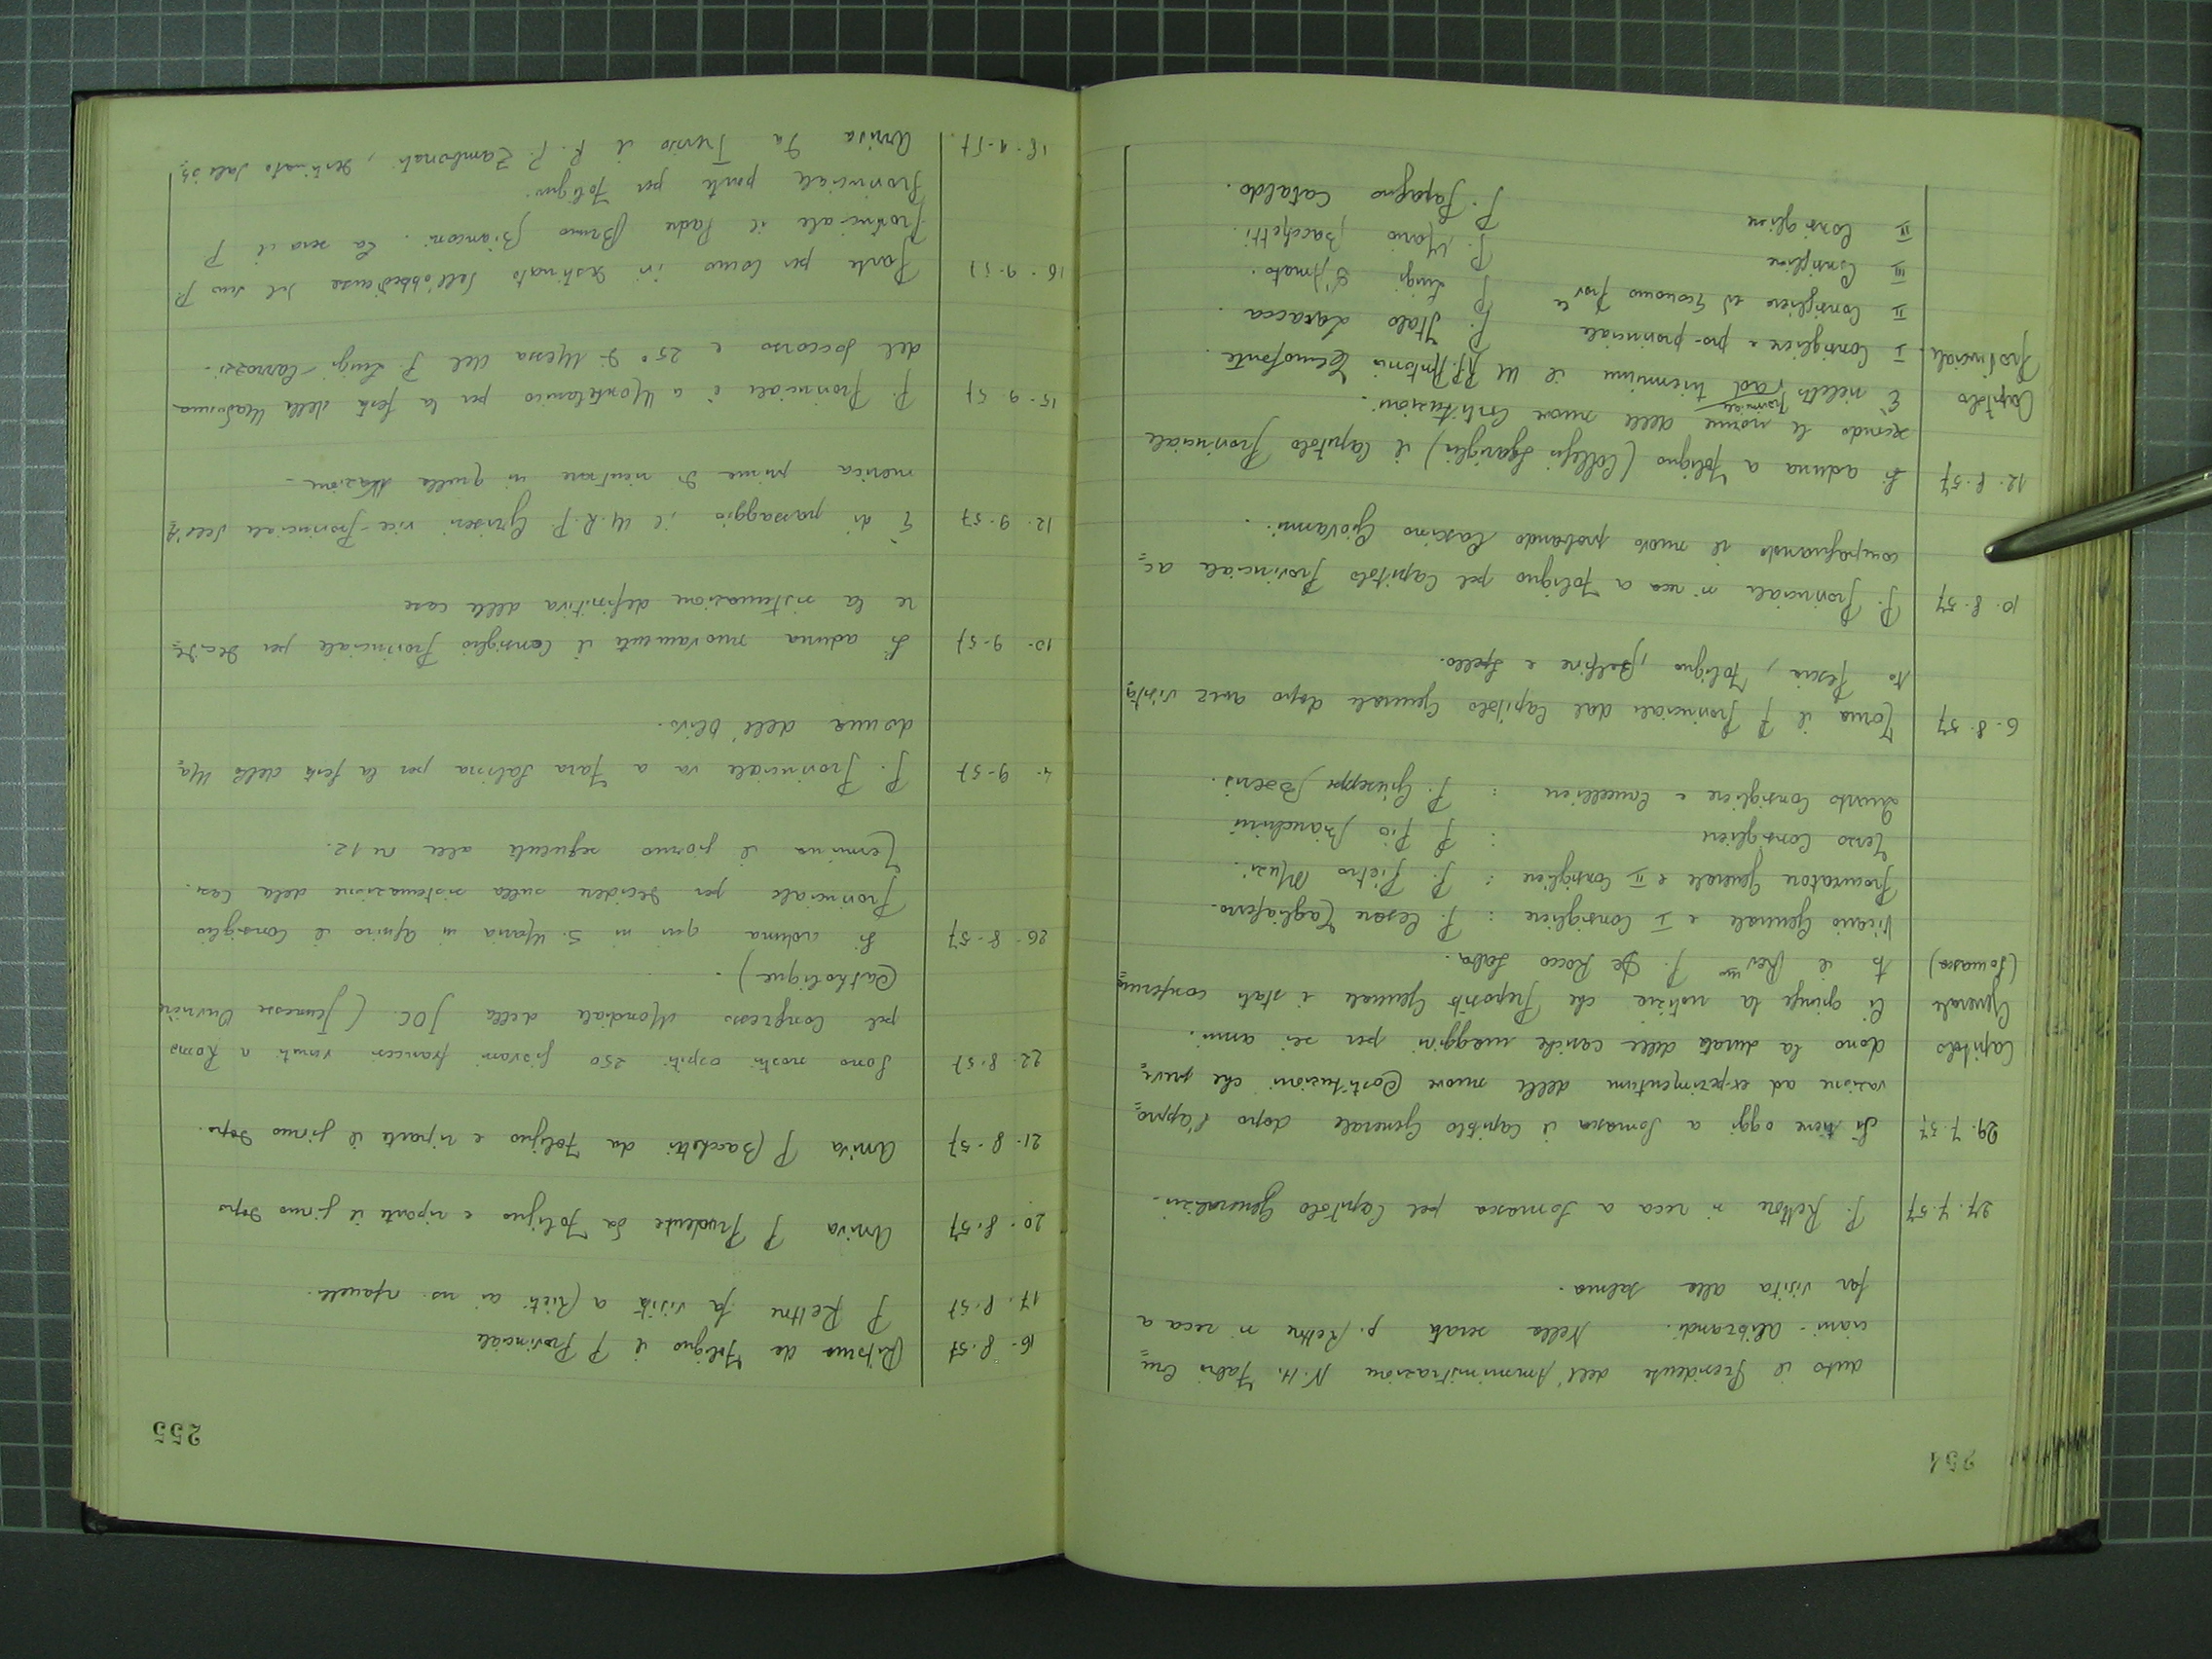 254
auto il Presidente dell'Amministrazione N.H. Fabri Cru=
ciani - Alibrandi. Nella serata p. Rettore si reca a
far visita alla salma.
27.7.57 P. Rettore si reca a Somasca pel Capitolo Generalizio.
29.7.57 Si tiene oggi a Somasca il Capitolo Generale dopo l'appro=
vazione ad experimentum delle nuove Costituzioni che preve=
Capitolo dono la durata delle cariche maggiori per sei anni.
Generale Ci giunge la notizia che Preposito Generale è stato conferma=
(Somasca) to il Rev.mo P. De Rocco Saba.
Vicario Generale e I Consigliere : P. Cesare Tagliaferro.
Procuratore Generale e II Consigliere : P. Pietro Muzi.
Terzo Consigliere : P. Pio Bianchini
Quarto Consigliere e Cancelliere : P. Giuseppe Boeris.
6.8.57 Torna il P. Provinciale dal Capitolo Generale dopo aver visita=
to Pescia, Foligno, Belfiore e Spello.
10.8.57 P. Provinciale si reca a Foligno pel Capitolo Provinciale ac=
compagnando il nuovo probando Cascino Giovanni.
12.8.57 Si aduna a Foligno (Collegio Sgariglia) il Capitolo Provinciale
secondo le norme delle nuove Costituzioni.
Capitolo È rieletto Provinciale "ad triennium" il M.R.P. Antonio Temofonte.
Provinciale I Consigliere e pro-provinciale P. Italo Laracca.
II Consigliere ed Economo Prov.le P. Luigi D'Amato.
III Consigliere P. Mario Bacchetti.
II Consigliere P. Papagno Cataldo.
255
16-8.57 Ritorna da Foligno il P. Provinciale
17.8.57 P. Rettore fa visita a Rieti ai ns.
20.8.57 Arriva P. Prudente da Foligno e riparte il giorno dopo
21-8-57 Arriva P. Bacchetti da Foligno e riparte il giorno dopo.
22.8.57 Sono nostri ospiti 250 giovani francesi venuti a Roma
pel Congresso Mondiale della JOC. (Jeunesse Ouvrière
Catholique).
26-8-57 Si aduna qui in S. Maria in Aquiro il Consiglio
Provinciale per decidere sulla sistemazione della Casa.
Termina il giorno seguente alle ore 12.
4.9-57 P. Provinciale va a Fara Sabina per la festa della Ma=
donna dell'Olivo.
10-9-57 Si aduna nuovamente il Consiglio Provinciale per decide=
re la sistemazione definitiva delle case
12.9.57 È di passaggio il M.R.P. Griseri vice-Provinciale dell'A=
merica prima di rientrare in quella Nazione.
15.9.57 P. Provinciale è a Montelanico per la festa della Madonna
del Soccorso e 25° di Messa del P. Luigi Carrozzi.
16.9.57 Parte per Como ivi destinato dall'obbedienza del suo P.
Provinciale il Padre Bruno Bianconi. La sera il P
Provinciale parte per Foligno.
18.9-57. Arriva da Treviso il R.P. Zambonati, destinato dall'ob=